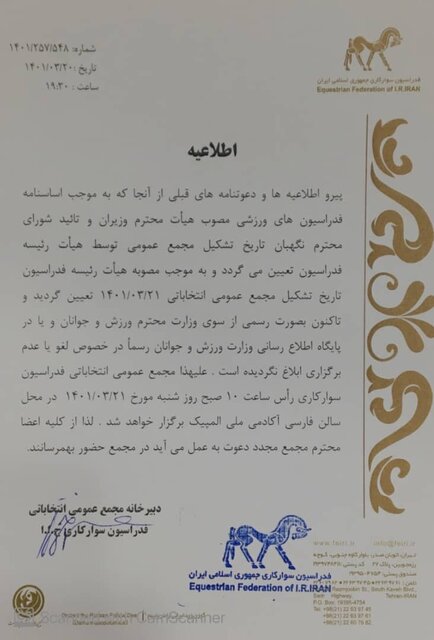 شماره: ۱۴۰۱/۲۵۷/۵۴۸
تاریخ: ۱۴۰۱/۰۳/۲۰
ساعت : ۱۹:۲۰
فدراسیون سوارکاری جمهوری اسلامی ایران
Equestrian Federation of I.R.IRAN
اطلاعیه
پیرو اطلاعیه ها و دعوتنامه های قبلی از آنجا که به موجب اساسنامه
فدراسیون های ورزشی مصوب هیأت محترم وزیران و تائید شورای
محترم نگهبان تاریخ تشکیل مجمع عمومی توسط هیأت رئیسه
فدراسیون تعیین می گردد و به موجب مصوبه هیأت رئیسه فدراسیون
تاریخ تشکیل مجمع عمومی انتخاباتی ۱۴۰۱/۰۳/۲۱ تعیین گردید و
تاکنون بصورت رسمی از سوی وزارت محترم ورزش و جوانان و یا در
پایگاه اطلاع رسانی وزارت ورزش و جوانان رسماً در خصوص لغو یا عدم
برگزاری ابلاغ نگردیده است . علیهذا مجمع عمومی انتخاباتی فدراسیون
سوارکاری رأس ساعت ۱۰ صبح روز شنبه مورخ ۱۴۰۱/۰۳/۲۱ در محل
سالن فارسی آکادمی ملی المپیک برگزار خواهد شد . لذا از کلیه اعضا
محترم مجمع مجدد دعوت به عمل می آید در مجمع حضور بهمرسانند.
دبیرخانه مجمع عمومی انتخاباتی
فدراسیون سوارکاری ج.ا.ا
فدراسیون سوارکاری جمهوری اسلامی ایران
Equestrian Federation of I.R.IRAN
www.feiri.ir info@feiri.ir
P.O. Box:
Tehran-IRAN
CamScanner